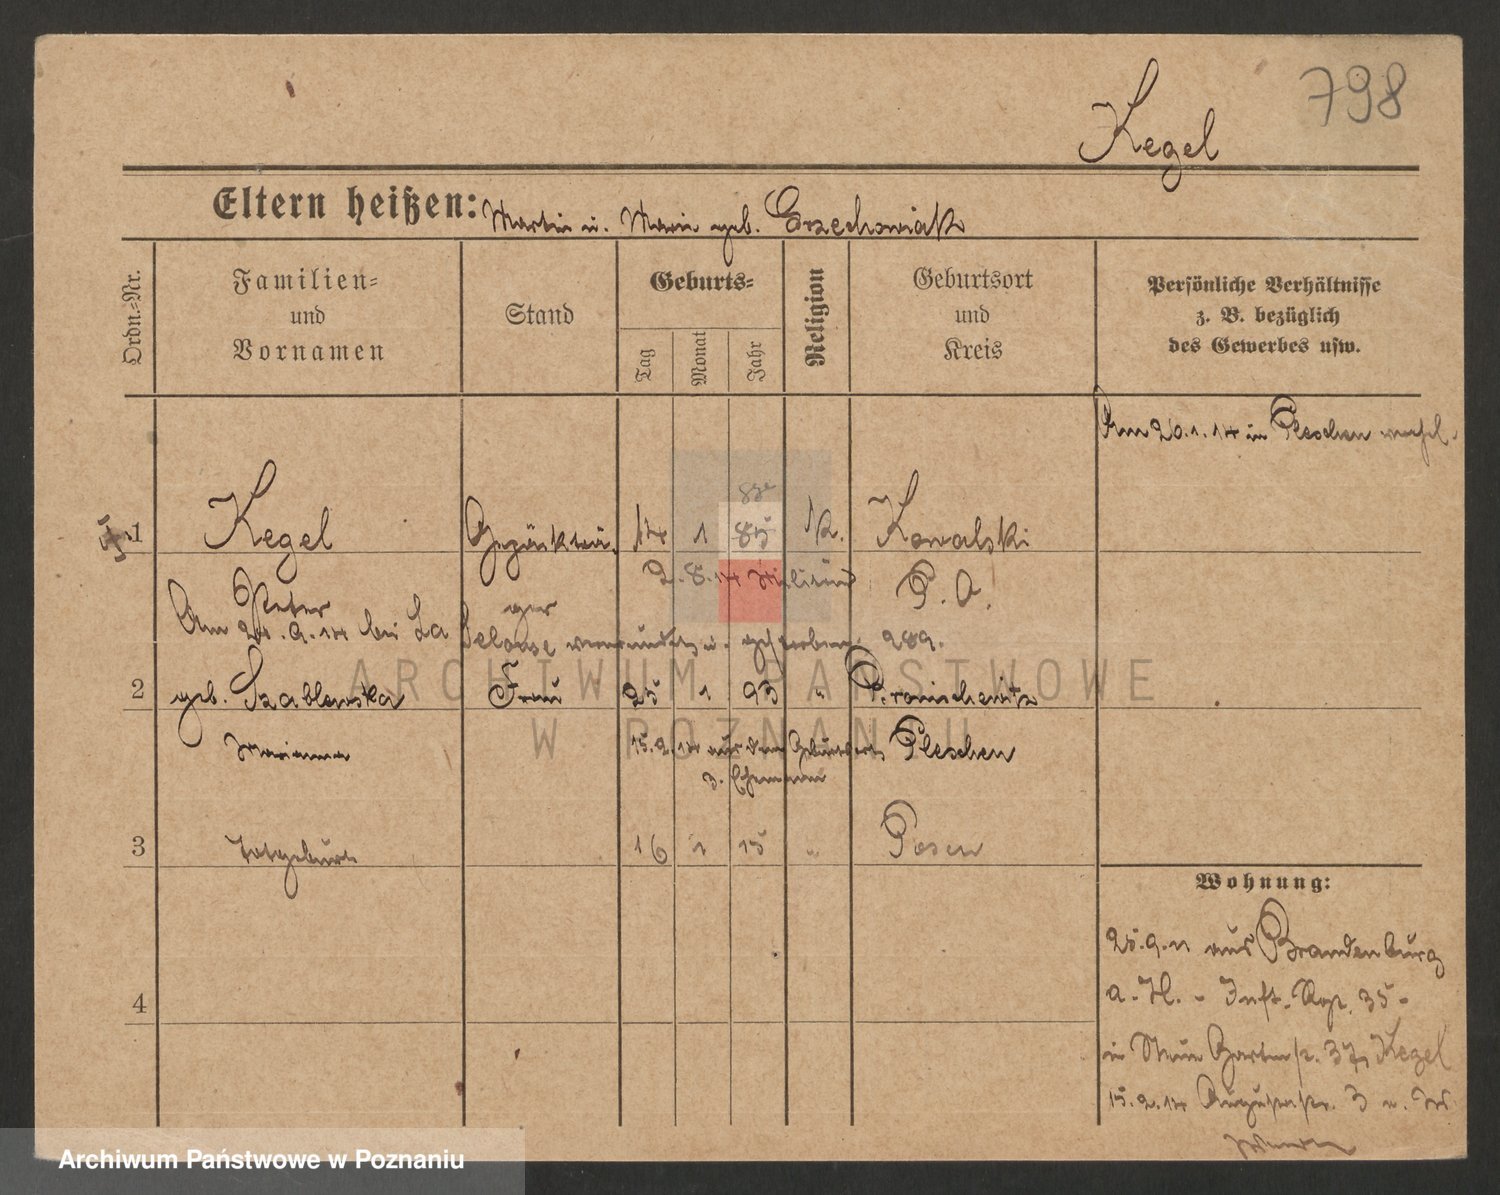 798
Kegel
Eltern heißen: Martin u. Marie geb. Grzechowiak
Ordn.-Nr.
Familien-
und
Vornamen
Stand
Geburts-
Tag
Monat
Jahr
Religion
Geburtsort
und
Kreis
Persönliche Verhältnisse
z. B. bezüglich
des Gewerbes usw.
Am 20.1.14 in Pleschen
1
Kegel
14 1 85 k. Kowalski
Peter
ger
2.8.14 P. O.
Am 24.9.14 bei La u. gestorben. 289.
2
geb. Szablewska Frau 25 1 93 " Pronischewitz
Marianna
15.2.14 aus dem Geburtsort Pleschen
z. Ehemann
3
Totgeburt 16 1 15 " Posen
4
Wohnung:
25.9.11 aus Brandenburg
a. H. - Inft. Rgt. 35 -
in Neue Gartenstr. 37, Kegel
15.2.14 Augustastr. 3
ARCHIWUM PAŃSTWOWE
W POZNANIU
Archiwum Państwowe w Poznaniu